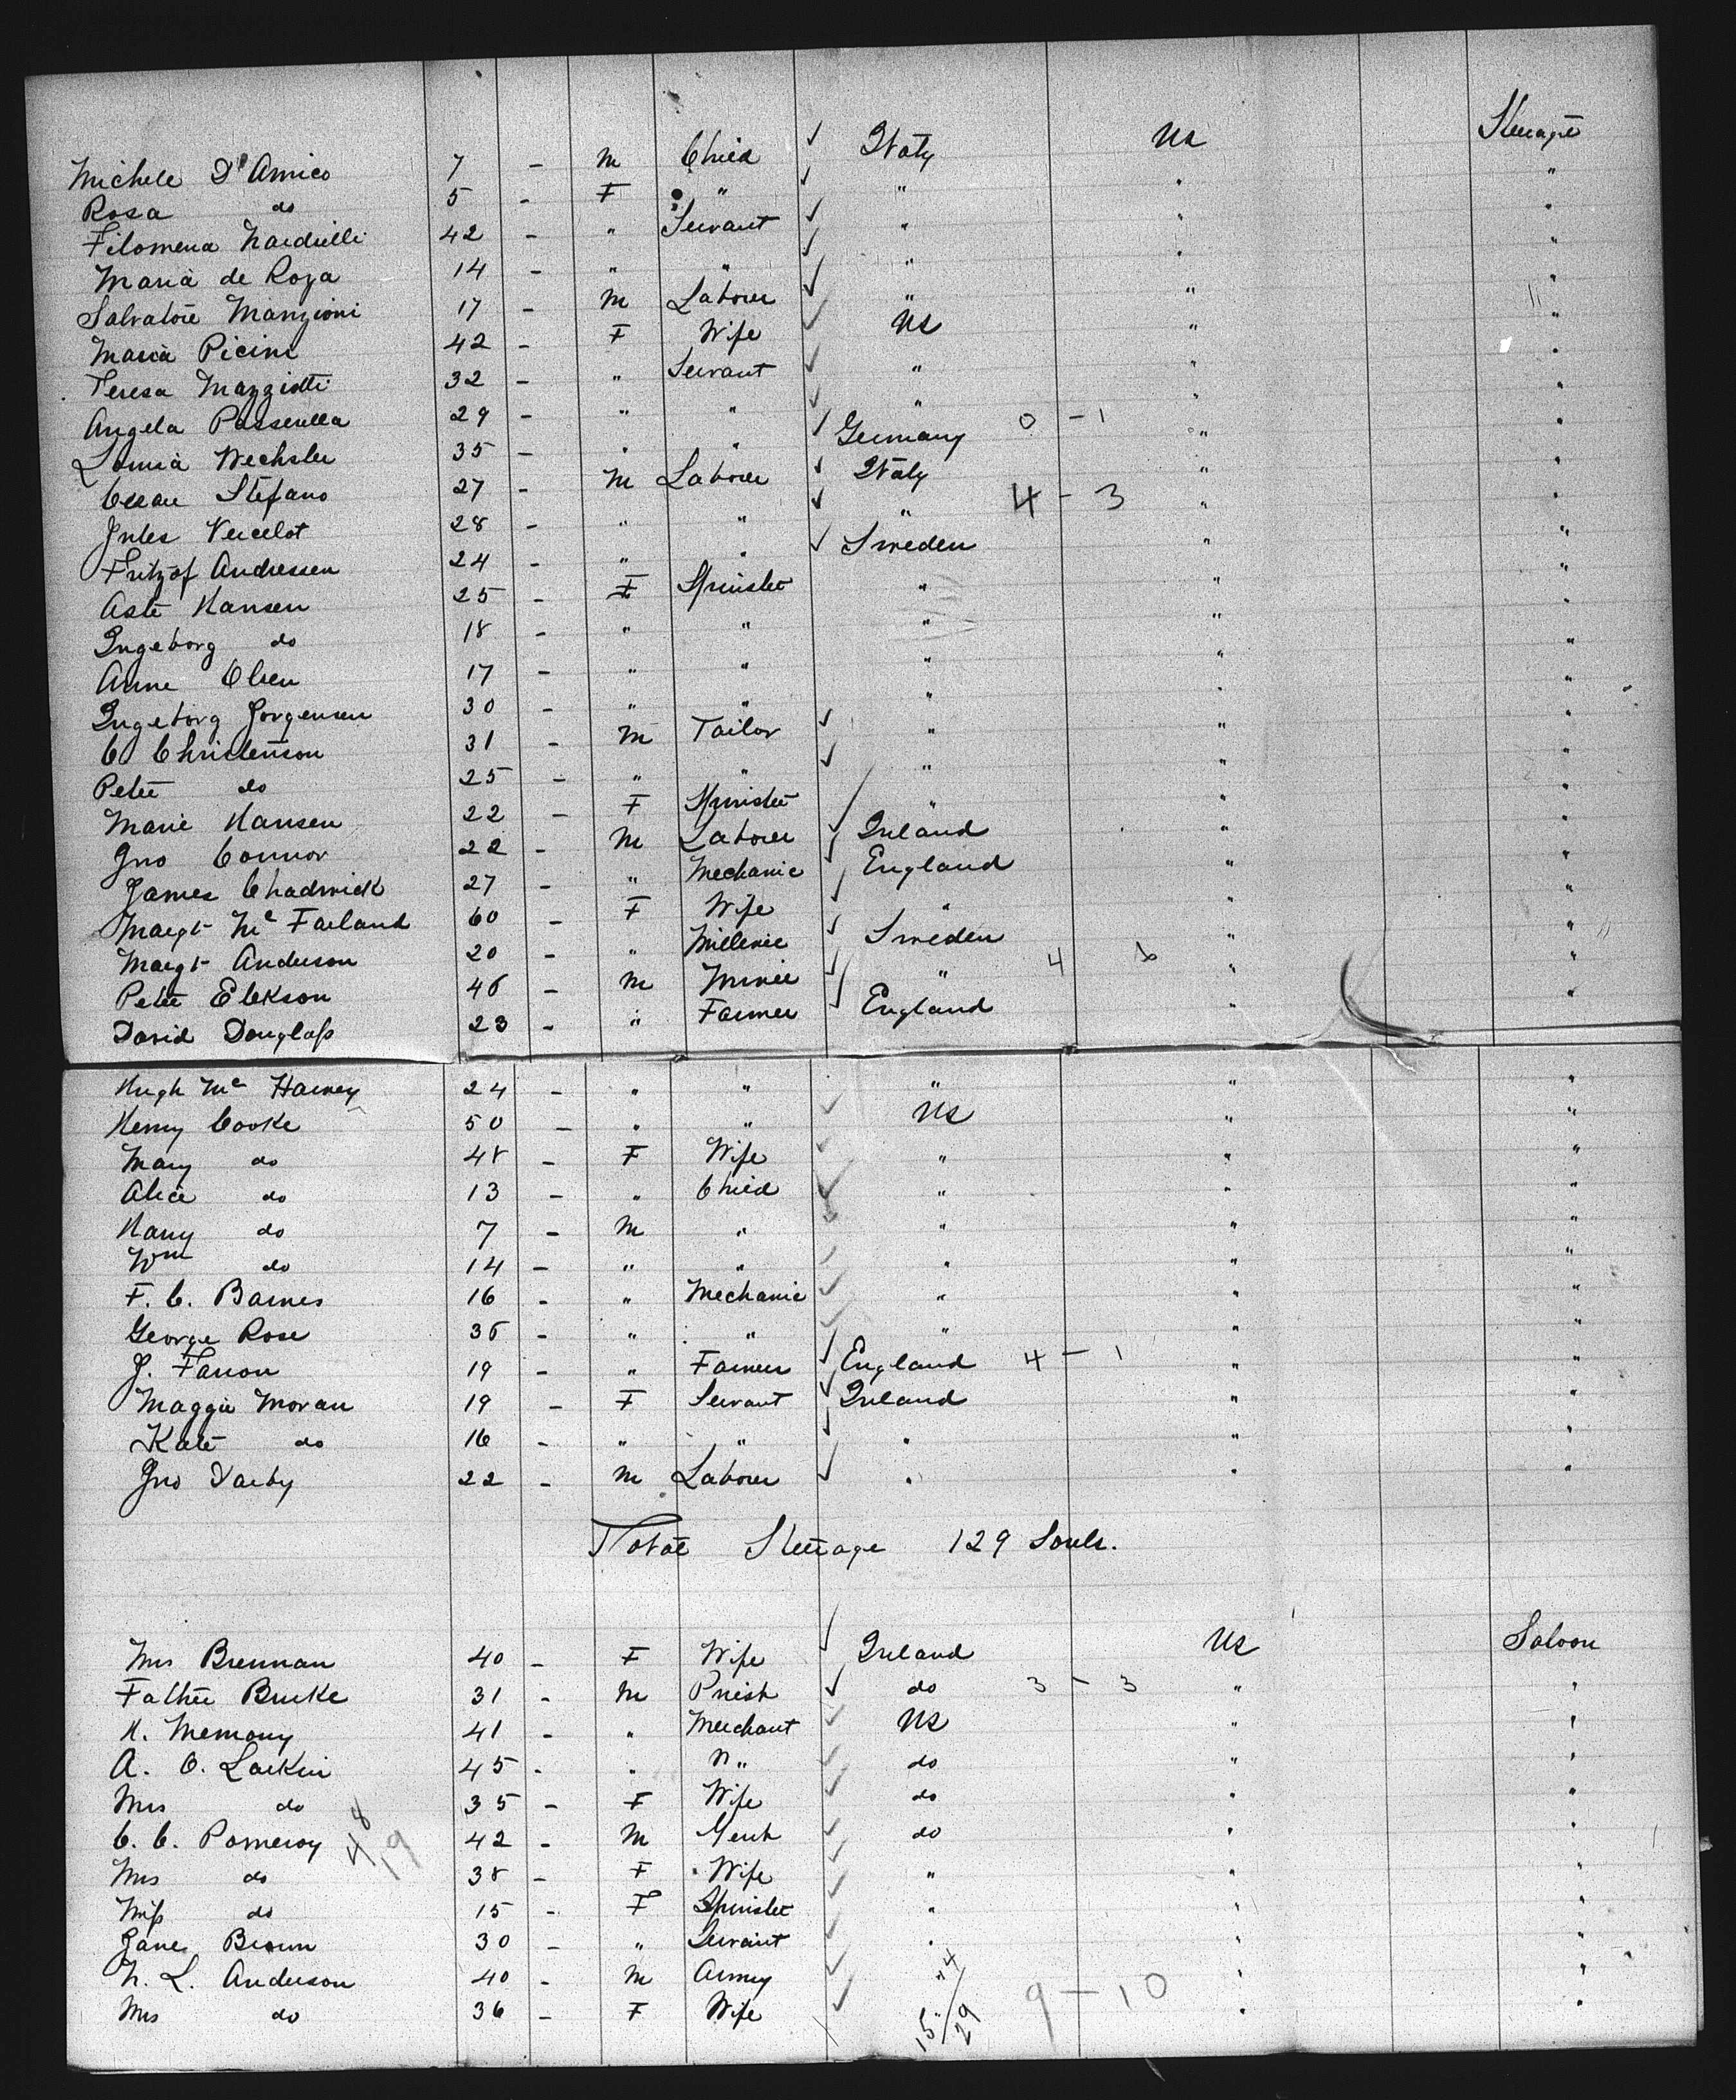 Michele D'Amico 7 - M Child ✓ Italy US Steerage
Rosa do 5 - F " ✓ " " "
Filomena Nardielli 42 - " Servant ✓ " " "
Maria de Roza 14 - " " ✓ " " "
Salvatore Manzioni 17 - M Laborer ✓ " " "
Maria Picini 42 - F Wife ✓ US " "
Teresa Mazziotti 32 - " Servant ✓ " " "
Angela Passerella 29 - " " ✓ " " "
Louisa Wechsler 35 - " " ✓ Germany 0 - 1 " "
Cesare Stefano 27 - M Laborer ✓ Italy " "
Jules Vercelot 28 - " " ✓ " 4 - 3 " "
Fritzof Andressen 24 - " " ✓ Sweden " "
Aste Hansen 25 - F Spinster " " "
Ingeborg do 18 - " " " " "
Anne Olsen 17 - " " " " "
Ingeborg Jorgensen 30 - " " " " "
C Christenson 31 - M Tailor ✓ " " "
Peter do 25 - " " ✓ " " "
Marie Hansen 22 - F Spinster ✓ " " "
Jno Connor 22 - M Laborer ✓ Ireland " "
James Chadwick 27 - " Mechanic ✓ England " "
Margt Mc Farland 60 - F Wife ✓ " " "
Margt Anderson 20 - " Milliner ✓ Sweden " "
Peter Elekson 46 - M Miner ✓ " 4 6 " "
David Douglass 23 - " Farmer ✓ England " "
Hugh Mc Harvey 24 - " " " " "
Henry Cooke 50 - " " ✓ US " "
Mary do 48 - F Wife ✓ " " "
Alice do 13 - " Child ✓ " " "
Harry do 7 - M " ✓ " " "
Wm do 14 - " " ✓ " " "
F. C. Barnes 16 - " Mechanic ✓ " " "
George Rose 36 - " " ✓ " " "
J. Farron 19 - " Farmer ✓ England 4 - 1 " "
Maggie Moran 19 - F Servant ✓ Ireland " "
Kate do 16 - " " ✓ " " "
Jno Darby 22 - M Laborer ✓ " " "
Total Steerage 129 Souls.
Mrs Brennan 40 - F Wife ✓ Ireland US Saloon
Father Burke 31 - M Priest ✓ do 3 - 3 " "
H. Memory 41 - " Merchant ✓ US " "
A. O. Larkin 45 - " " ✓ do " "
Mrs do 35 - F Wife ✓ do " "
C. C. Pomeroy 48 19 42 - M Gent ✓ do " "
Mrs do 38 - F Wife ✓ " " "
Miss do 15 - F Spinster ✓ " " "
Jane Brown 30 - " Servant ✓ " " "
N. L. Anderson 40 - M Army ✓ " 14 " "
Mrs do 36 - F Wife ✓ " 15/29 9 - 10 " "